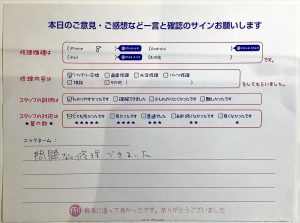 本日のご意見・ご感想など一言と確認のサインお願いします
修理機種は
iPhone 8
iPad
Android
その他
です。
修理内容は
バッテリー交換
画面修理
水没修理
パーツ修理
その他
をしてもらいました。
スタッフの説明は
わかりやすかったです
理解できました
少しわかりにくかったです
難しかったです
スタッフの対応は
★の数
とても良かったです
良かったです
普通でした
悪かったです
★★★★★
★★★★
★★★
★★
★
ニックネーム：
問題なく修理できました
無事に直って良かったです。ありがとうございました